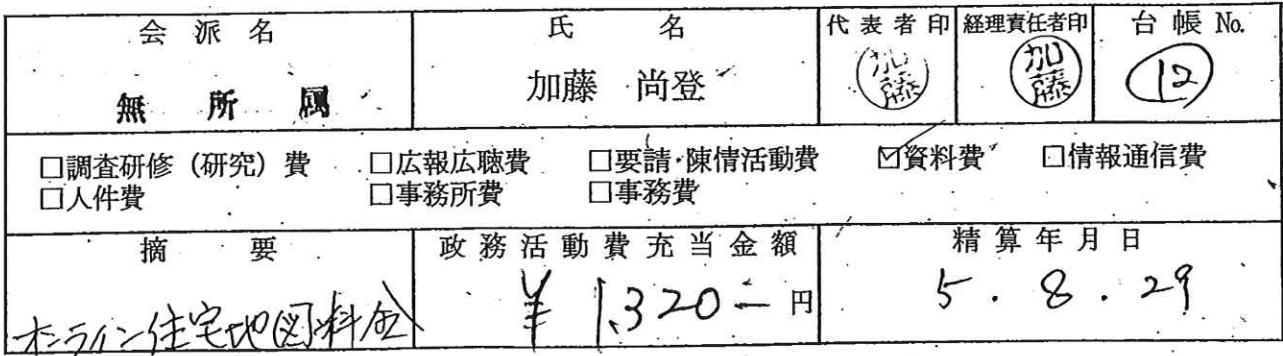 会派名 氏名 代表者印 経理責任者印 台帳 No.
無所属 加藤 尚登 加藤 加藤 12
□調査研修（研究）費 □広報広聴費 □要請・陳情活動費 ☑資料費 □情報通信費
□人件費 □事務所費 □事務費
摘要 政務活動費充当金額 精算年月日
オンライン住宅地図料金 ¥1,320－円 5.8.29